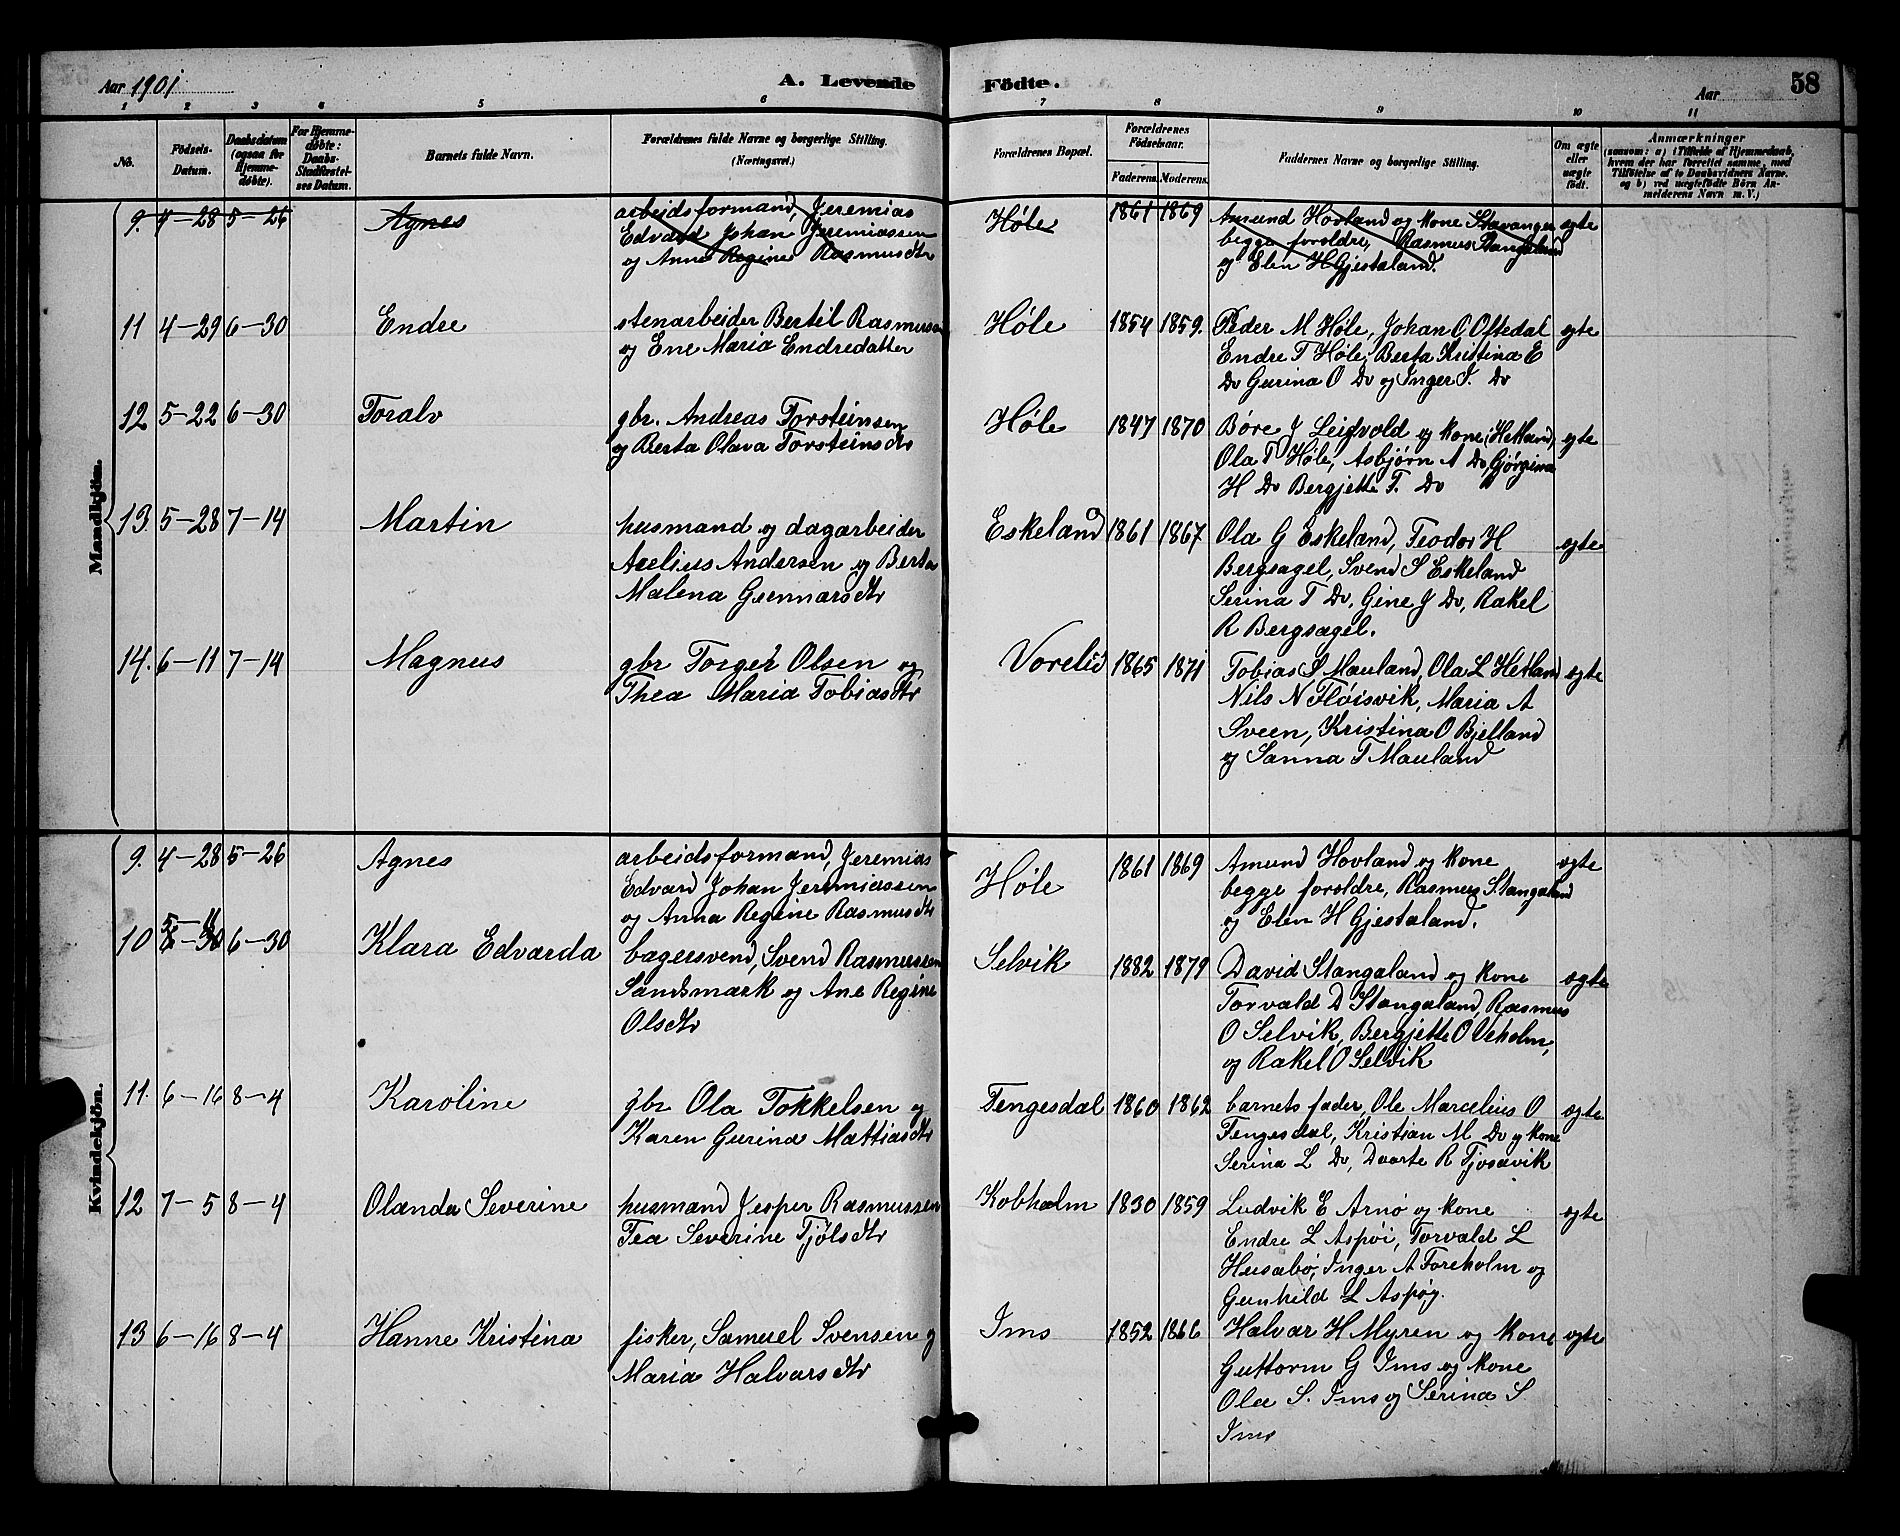 Aar 1901
A. Levende
Födte.
Aar
58
1 2 3 4 5 6 7 8 9 10 11
No.
Födsels-Datum.
Daabsdatum (ogsaa for Hjemme-døbte).
For Hjemme-døbte: Daabs-Stadfæstel-ses Datum.
Barnets fulde Navn.
Forældrenes fulde Navne og borgerlige Stilling.
(Næringsvei.)
Forældrenes Bopæl.
Forældrenes Födselsaar.
Faderens. Moderens.
Faddernes Navne og borgerlige Stilling.
Om ægte eller uægte født.
Anmærkninger
(saasom: a) i Tilfælde af Hjemmedaab,
hvem der har forrettet samme, med
Tilföielse af to Daabsvidners Navne.
og b) ved uægtefödte Börn An-
melderens Navn m. V.)
Mandkjön.
9. 4-28 5-26 Agnes
arbeidsformand, Jeremias
Edvard Johan Jeremiassen
og Anne Regine Rasmusdtr
Høle 1861 1869
Amund Hovland og kone Stavanger
begge foroldre, Rasmus Stangaland
og Elen H Gjestaland.
egte
11 4-29 6-30 Endre
stenarbeider Bertil Rasmussen
og Ene Maria Endredatter
Høle 1854 1859.
Peder M Høle, Johan O Oftedal
Endre T Høle, Berta Kristina E
Do Gurina O Do og Inger J. Do
egte
12 5-22 6-30 Toralv
gbr. Andreas Torsteinsen
og Berta Olava Torsteinsdtr
Høle 1847 1870
Børe J Leidvold og kone (Hetland)
Ola T Høle, Asbjørn A Do, Gjørgina
H Do Bergjette T. Do
egte
13. 5-28 7-14 Martin
husmand og dagarbeider
Aselius Andersen og Berta
Malena Gunnarsdtr
Eskeland 1861 1867
Ola G Eskeland, Teodor H
Bergsagel, Svend S Eskeland
Serina T Do, Gine J Do, Rakel
R Bergsagel.
egte
14. 6-11 7-14 Magnus
gbr Torger Olsen og
Thea Maria Tobiasdtr
Vorelid 1865 1871
Tobias S Mauland, Ola L Hetland
Nils N Fløisvik, Maria A
Sveen, Kristina O Bjelland
og Sanna T Mauland
egte
Kvindekjön.
9. 4-28 5-26 Agnes
arbeidsformand, Jeremias
Edvard Johan Jeremiassen
og Anna Regine Rasmusdtr
Høle 1861 1869
Amund Hovland og kone
begge foroldre, Rasmus Stangaland
og Elen H Gjestaland.
egte
10 6-30 Klara Edvarda
bagersvend, Svend Rasmussen
Sandsmark og Ane Regine
Olsdtr
Selvik 1882 1879
David Stangaland og kone
Torvald D Stangaland, Rasmus
O Selvik, Bergjette O Uholm,
og Rakel O Selvik
egte
11. 6-16 8-4 Karoline
gbr Ola Tokkelsen og
Karen Gurina Mattiasdtr
Tengesdal 1860 1862
barnets fader, Ole Marcelius O
Tengesdal, Kristian M Do og kone
Serina L Do, Daarte R Tjosavik
egte
12 7-5 8-4 Olanda Severine
husmand Jesper Rasmussen
Tea Severine Tjølsdtr
Kobholm 1830 1859
Ludvik E Arnø og kone
Endre L Aspøi, Torvald L
Husabø, Inger A Foreholm og
Gunhild L Aspøy.
egte
13 6-16 8-4 Hanne Kristina
fisker, Samuel Svensen og
Maria Halvarsdtr
Ims 1852 1866
Halvar H Myren og kone
Guttorm G Ims og kone
Ola S. Ims og Serina S
Ims
egte